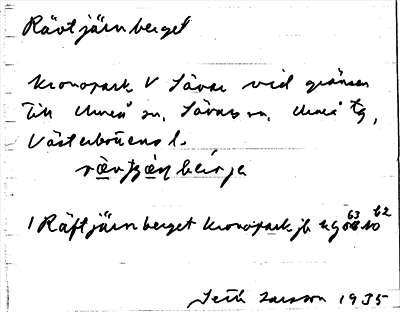 Rävtjärnberget
Kronopark V Sävar vid gränsen
till Umeå sn, Sävars sn, Umeå tg,
Västerbottens l.
1 Räftjärnberget kronopark jb
Seth Larsson 1935